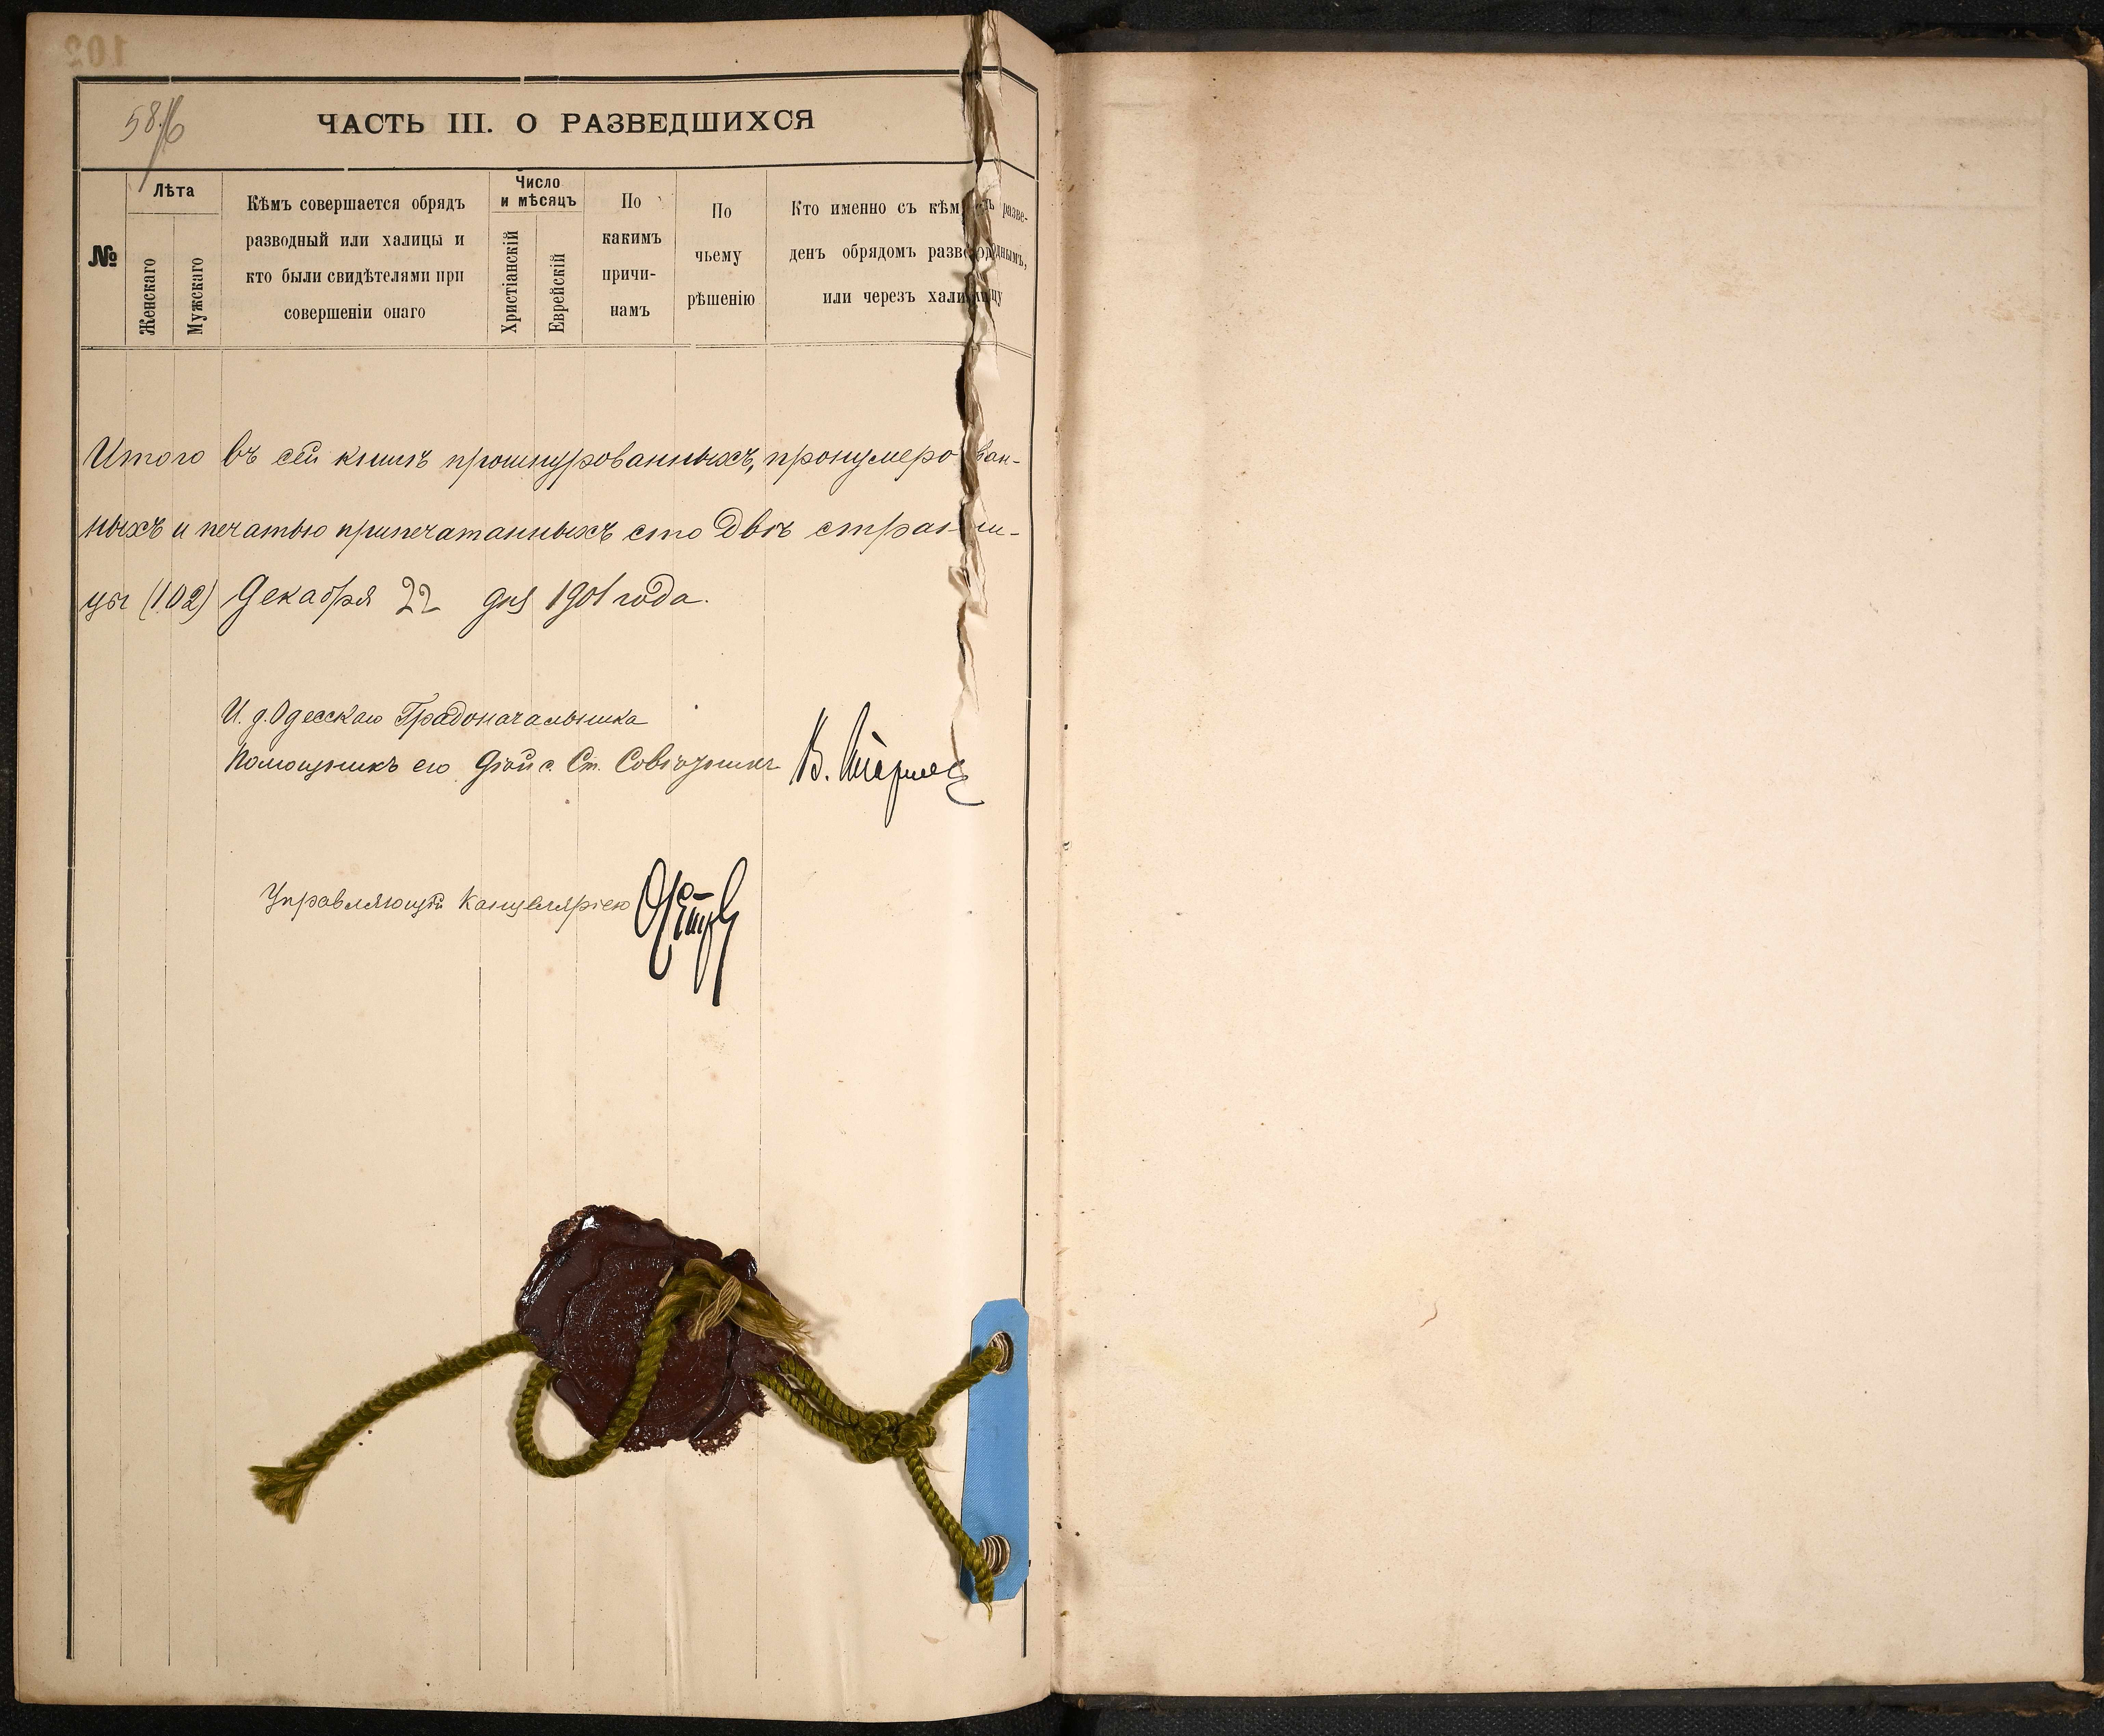 102
58/6
ЧАСТЬ III. О РАЗВЕДШИХСЯ
№
Лѣта
Женскаго
Мужскаго
Кѣмъ совершается обрядъ
разводный или халицы и
кто были свидѣтелями при
совершеніи онаго
Число
и мѣсяцъ
Христіанскій
Еврейскій
По
какимъ
причи-
намъ
По
чьему
рѣшенію
Кто именно съ кѣмъ разве-
денъ обрядомъ разводнымъ,
или черезъ халицу
Итого въ сей книгѣ прошнурованныхъ, пронумерован-
ныхъ и печатью припечатанныхъ сто двѣ страни-
цы (102) Декабря 22 дня 1901 года.
И. д. Одесскаго Градоначальника
Помощникъ его Дѣйс. Ст. Совѣтникъ В.
Управляющій Канцеляріею